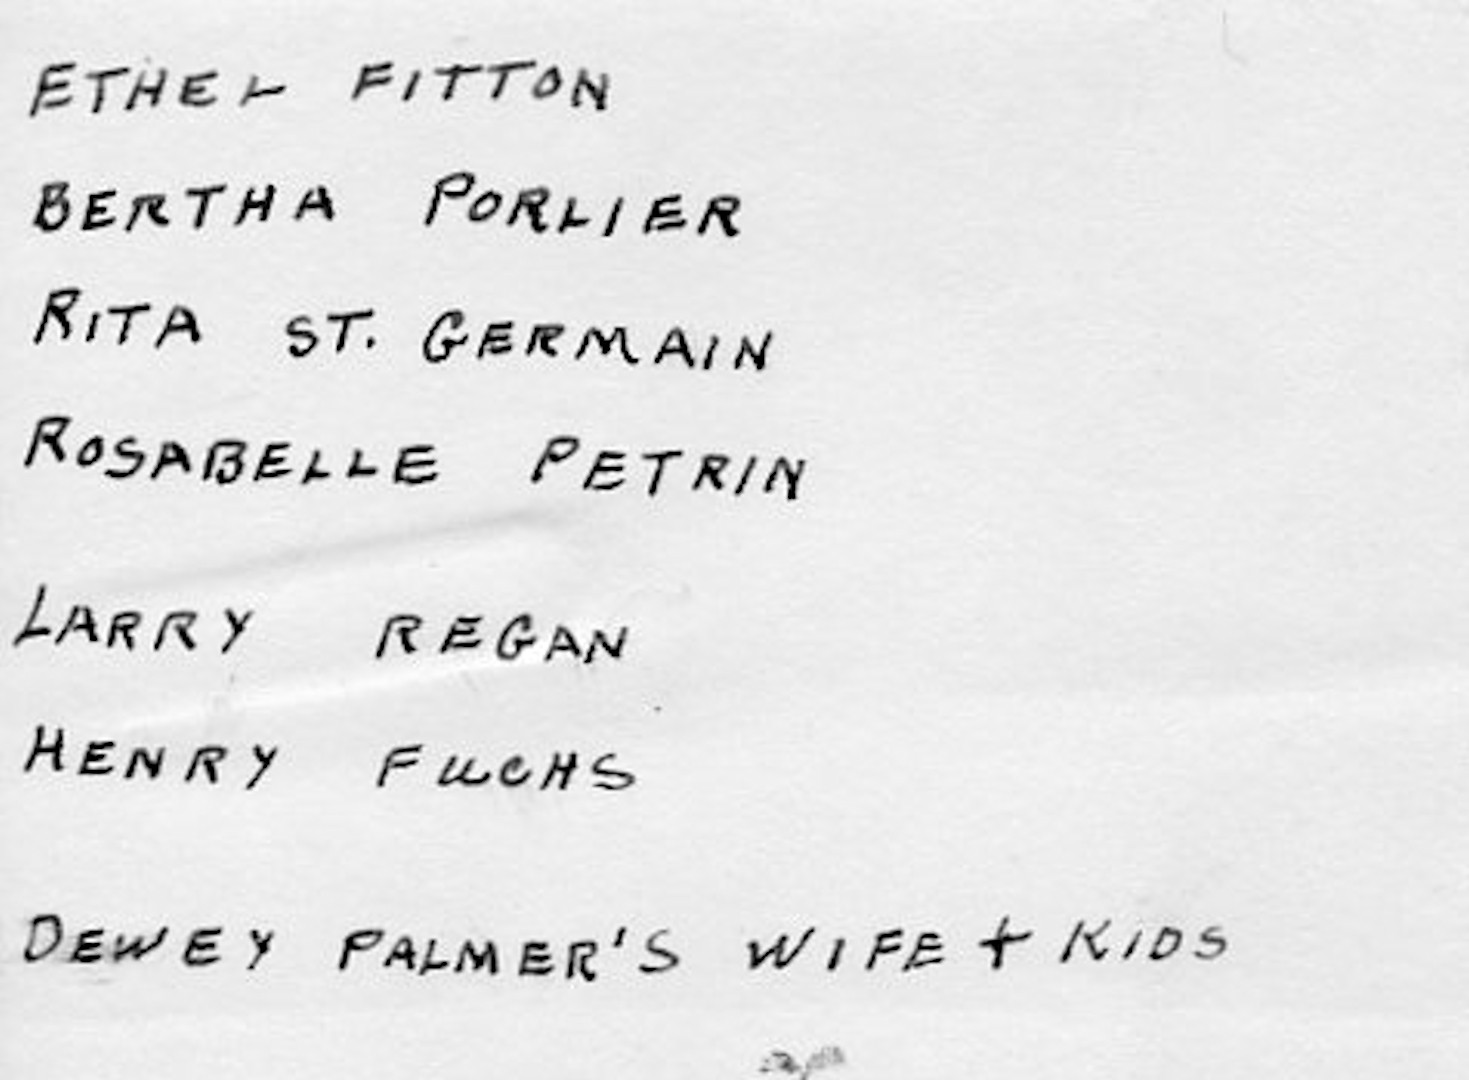 ETHEL FITTON
BERTHA PORLIER
RITA ST. GERMAIN
ROSABELLE PETRIN
LARRY REGAN
HENRY FUCHS
DEWEY PALMER'S WIFE + KIDS